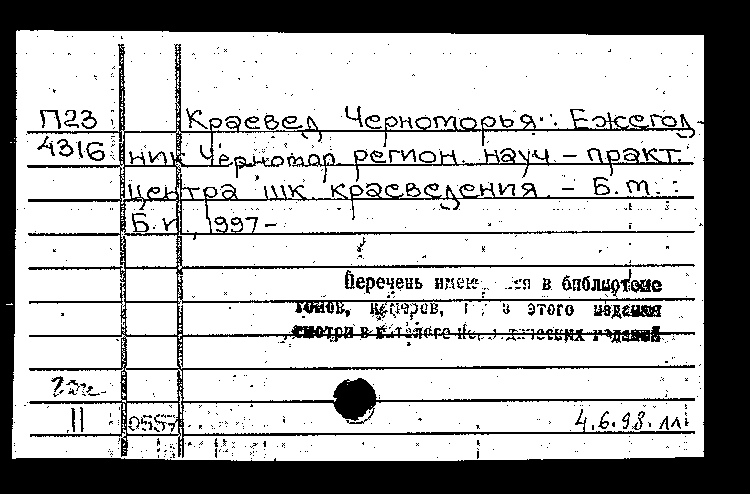 П23 Краевед Черноморья: Ежегод-
4316 ник Черномор. регион. науч-практ.
центра шк. краеведения. - Б.м. :
Б.и., 1997-
Перечень в библиотеке
томов, номеров, этого издания
смотри в каталоге изданий
II 0557 4.6.98.